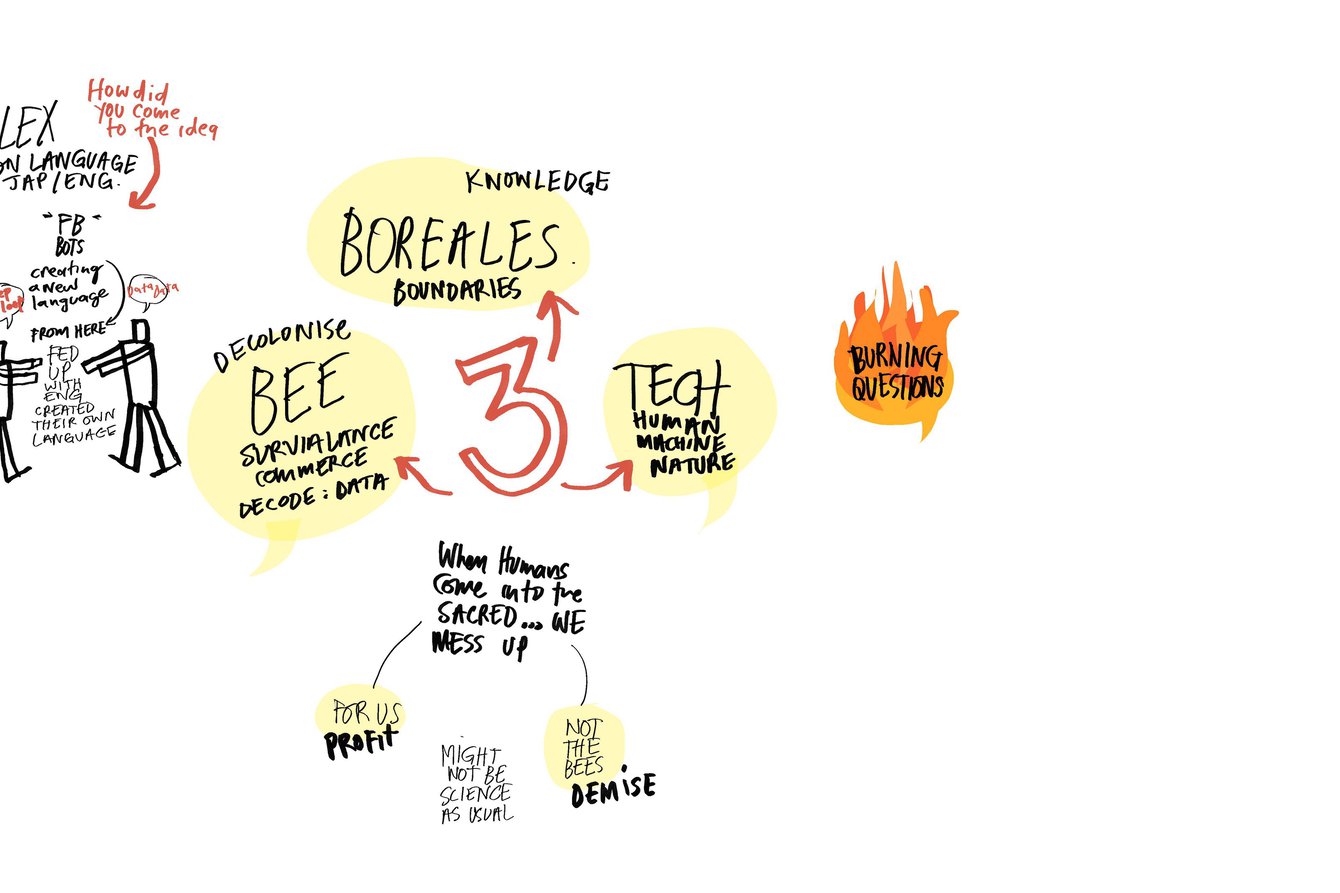 LEX
ON LANGUAGE
JAP/ENG.
How did
you come
to the idea
"FB"
BOTS
creating
a new
language
FROM HERE
Data data
FED
UP
WITH
ENG
CREATED
THEIR OWN
LANGUAGE
KNOWLEDGE
BOREALES.
BOUNDARIES
DECOLONISE
BEE
SURVIALANCE
COMMERCE
DECODE: DATA
3
TECH
HUMAN
MACHINE
NATURE
BURNING
QUESTIONS
When Humans
Come into the
SACRED... WE
MESS UP
FOR US
PROFIT
MIGHT
NOT BE
SCIENCE
AS USUAL
NOT
THE
BEES
DEMISE